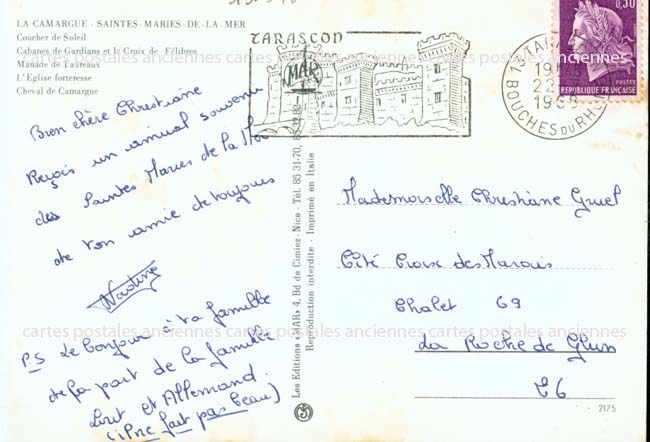 LA CAMARGUE - SAINTES-MARIES-DE-LA-MER
Coucher de Soleil
Cabanes de Gardians et la Croix de Félibres
Manade de Taureaux
L'Eglise forteresse
Cheval de Camargue
Bien chère Christiane
Reçois un amical souvenir
des Saintes Maries de la Mer
de ton amie de toujours
Nadine
P.S Le bonjour à ta famille
de la part de la famille
et Allemand.
(il ne fait pas beau)
Les Editions «MAR» 4, Bd de Cimiez - Nice - Tél. 85 31-70,
Reproduction interdite - Imprimé en Italie
TARASCON
MAR
13 TARASCON
22
1968
BOUCHES DU RHONE
0,30
POSTES
REPUBLIQUE FRANÇAISE
Mademoiselle Christiane Gruel
Cité Croix des Marais
Chalet 69
La Roche de Glun
26
2175
cartes postales anciennes cartes postales anciennes cartes postales anciennes
cartes postales anciennes cartes postales anciennes cartes postales anciennes